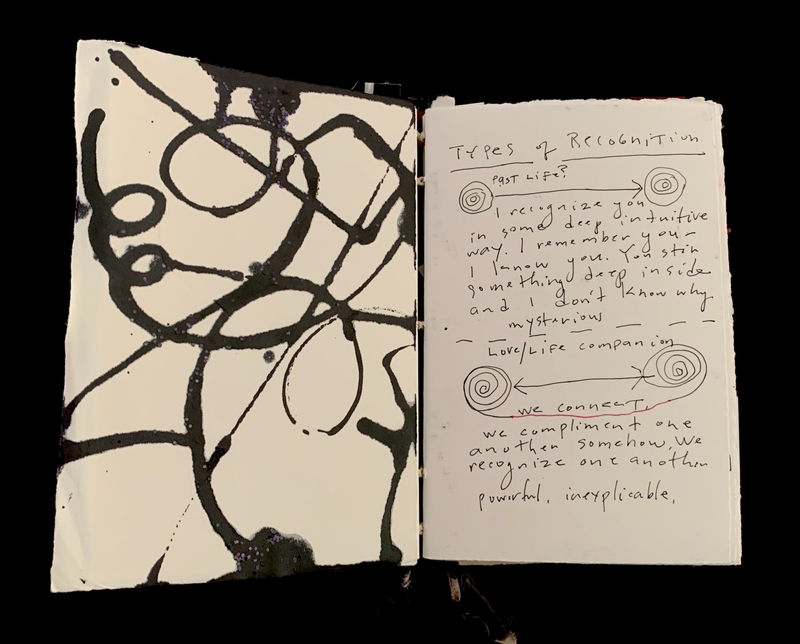 Types of Recognition
Past Life?
I recognize you
in some deep intuitive
way. I remember you-
I know you. You stir
something deep inside
and I don't know why
mysterious
Love/Life companion
we connect.
we compliment one
another somehow. We
recognize one another
powerful, inexplicable.